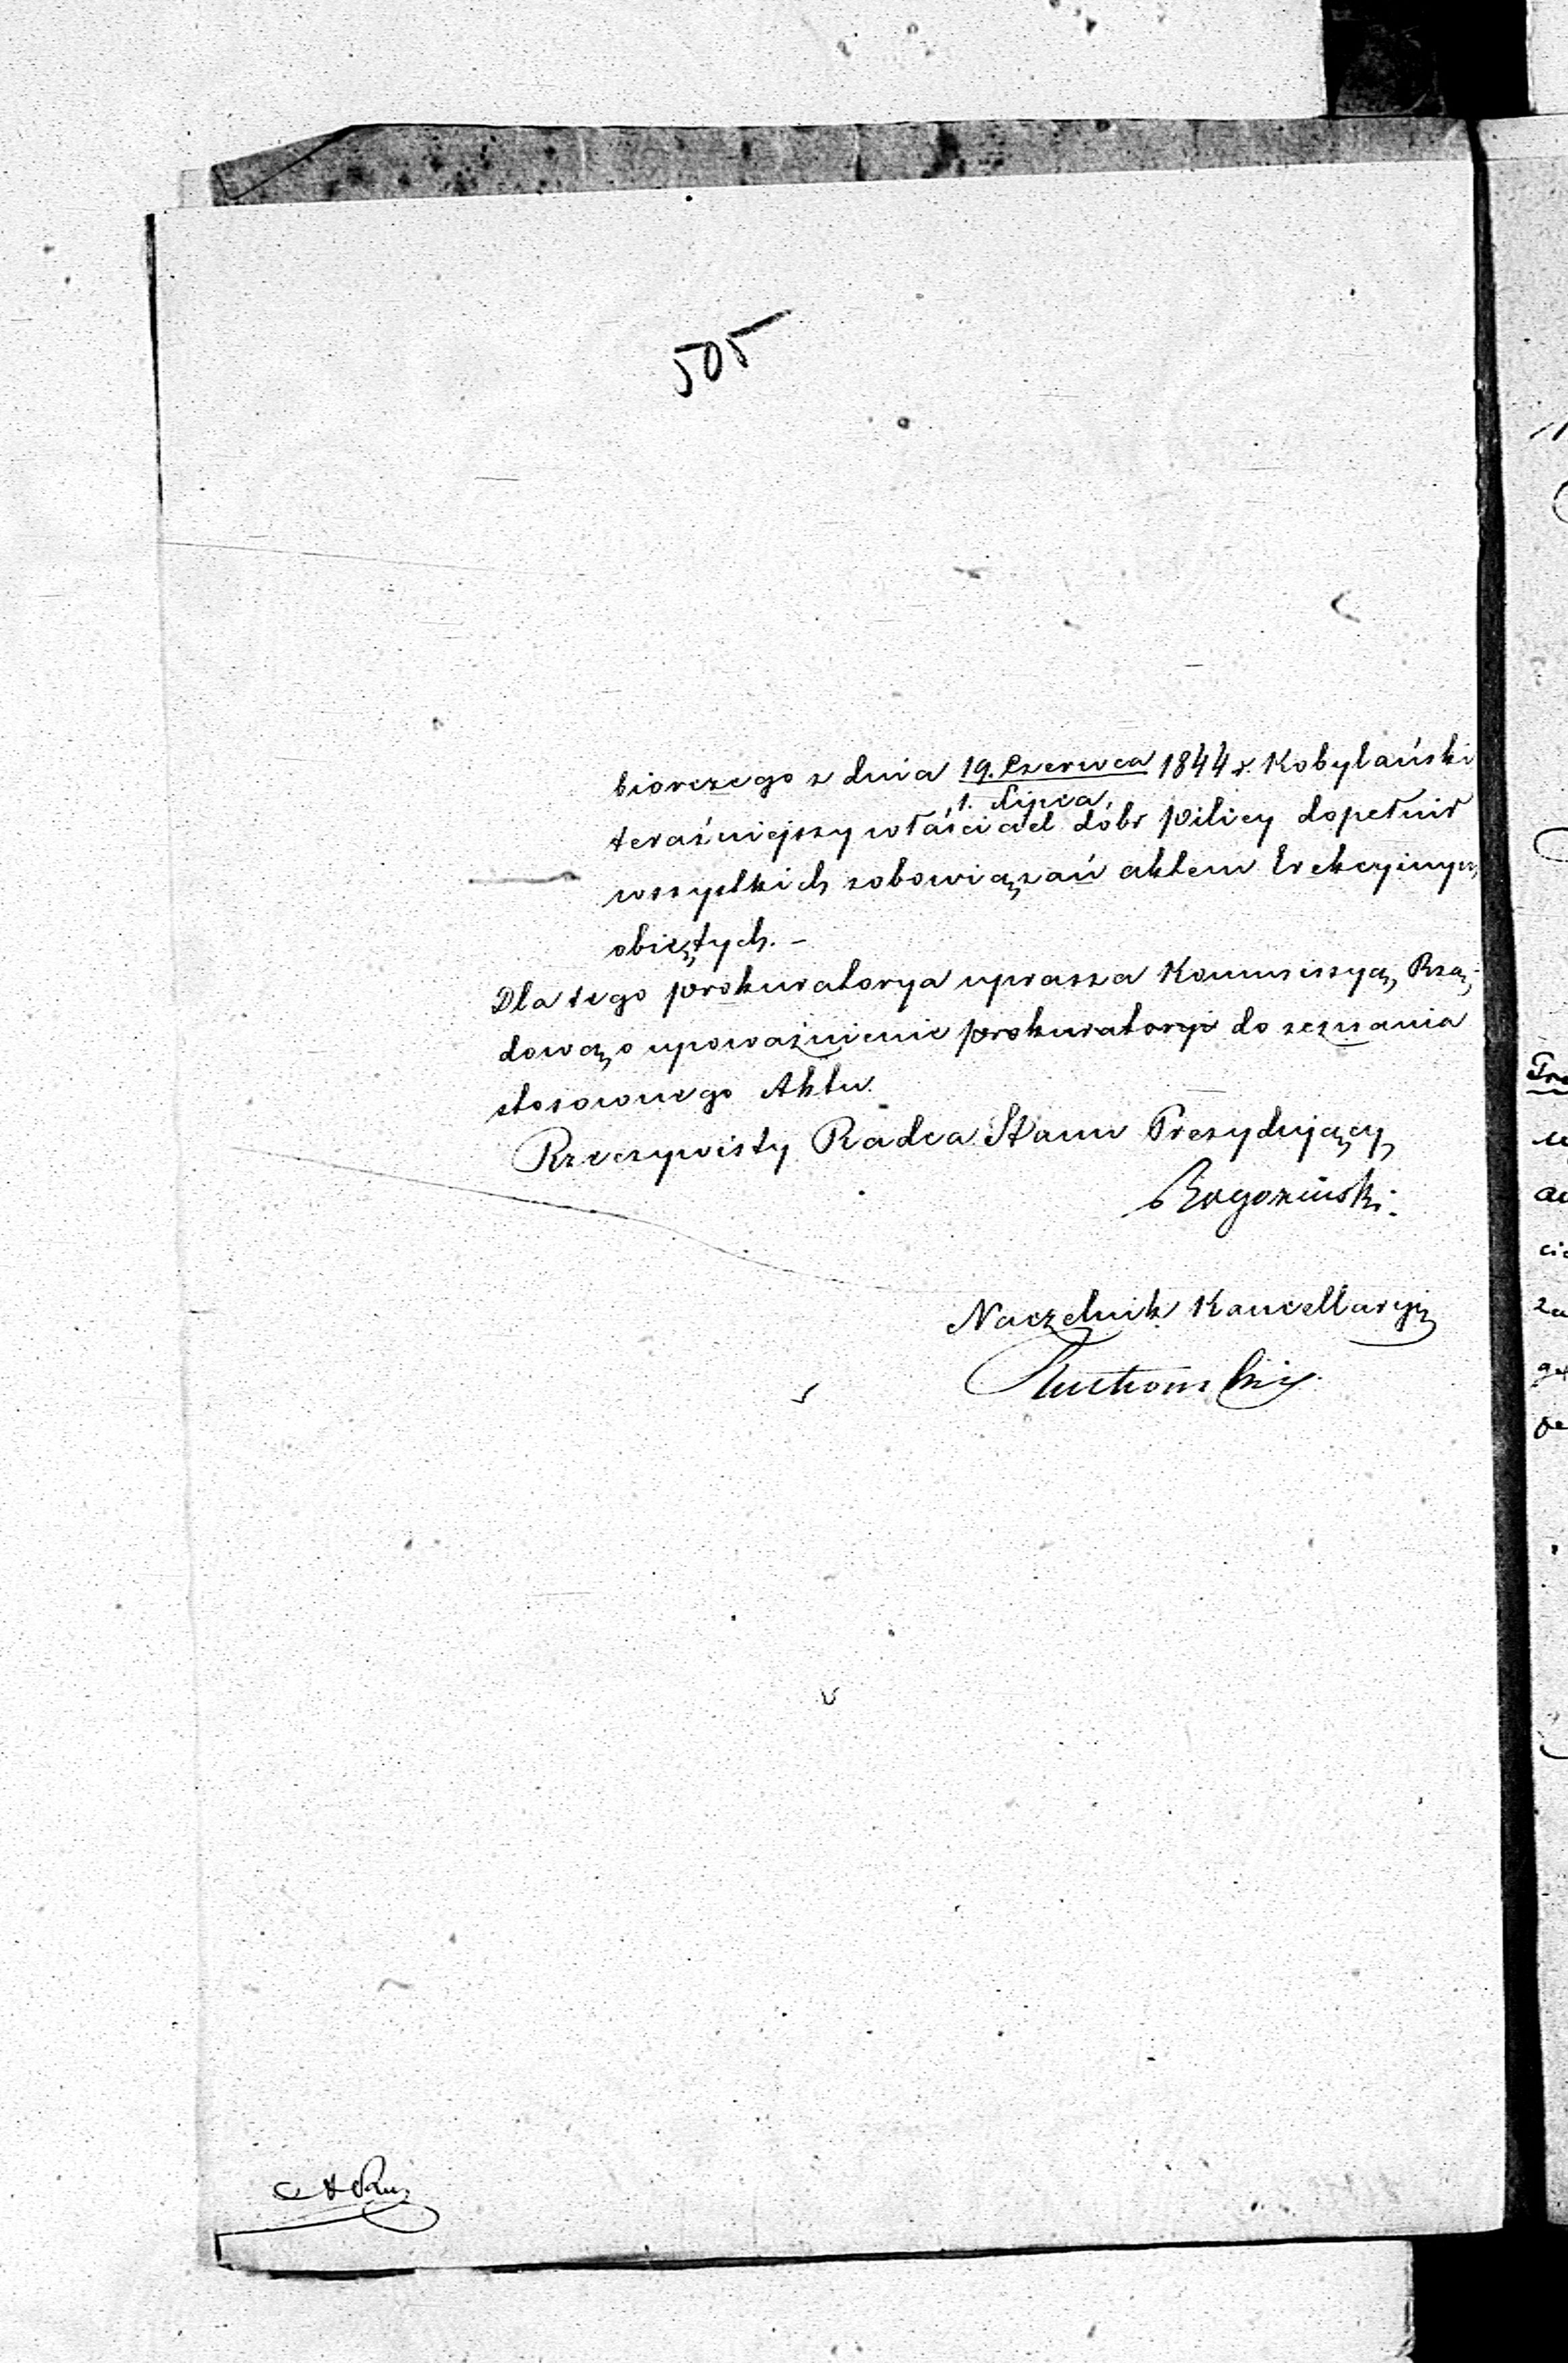 505
biorczego z dnia 19. Czerwca 1844 r. Kobylański
1. Lipca
teraźniejszy właściciel dóbr Pilicy dopełnił
wszystkich zobowiązań aktem Erekcyinym
obiętych. –
Dla tego prokuratorya uprasza Kommissyą Rzą-
dową o upoważnienie prokuratoryi do zeznania
stosownego Aktu.
Rzeczywisty Radca Stanu Prezydujący
Rogoziński.
Naczelnik Kancellaryi